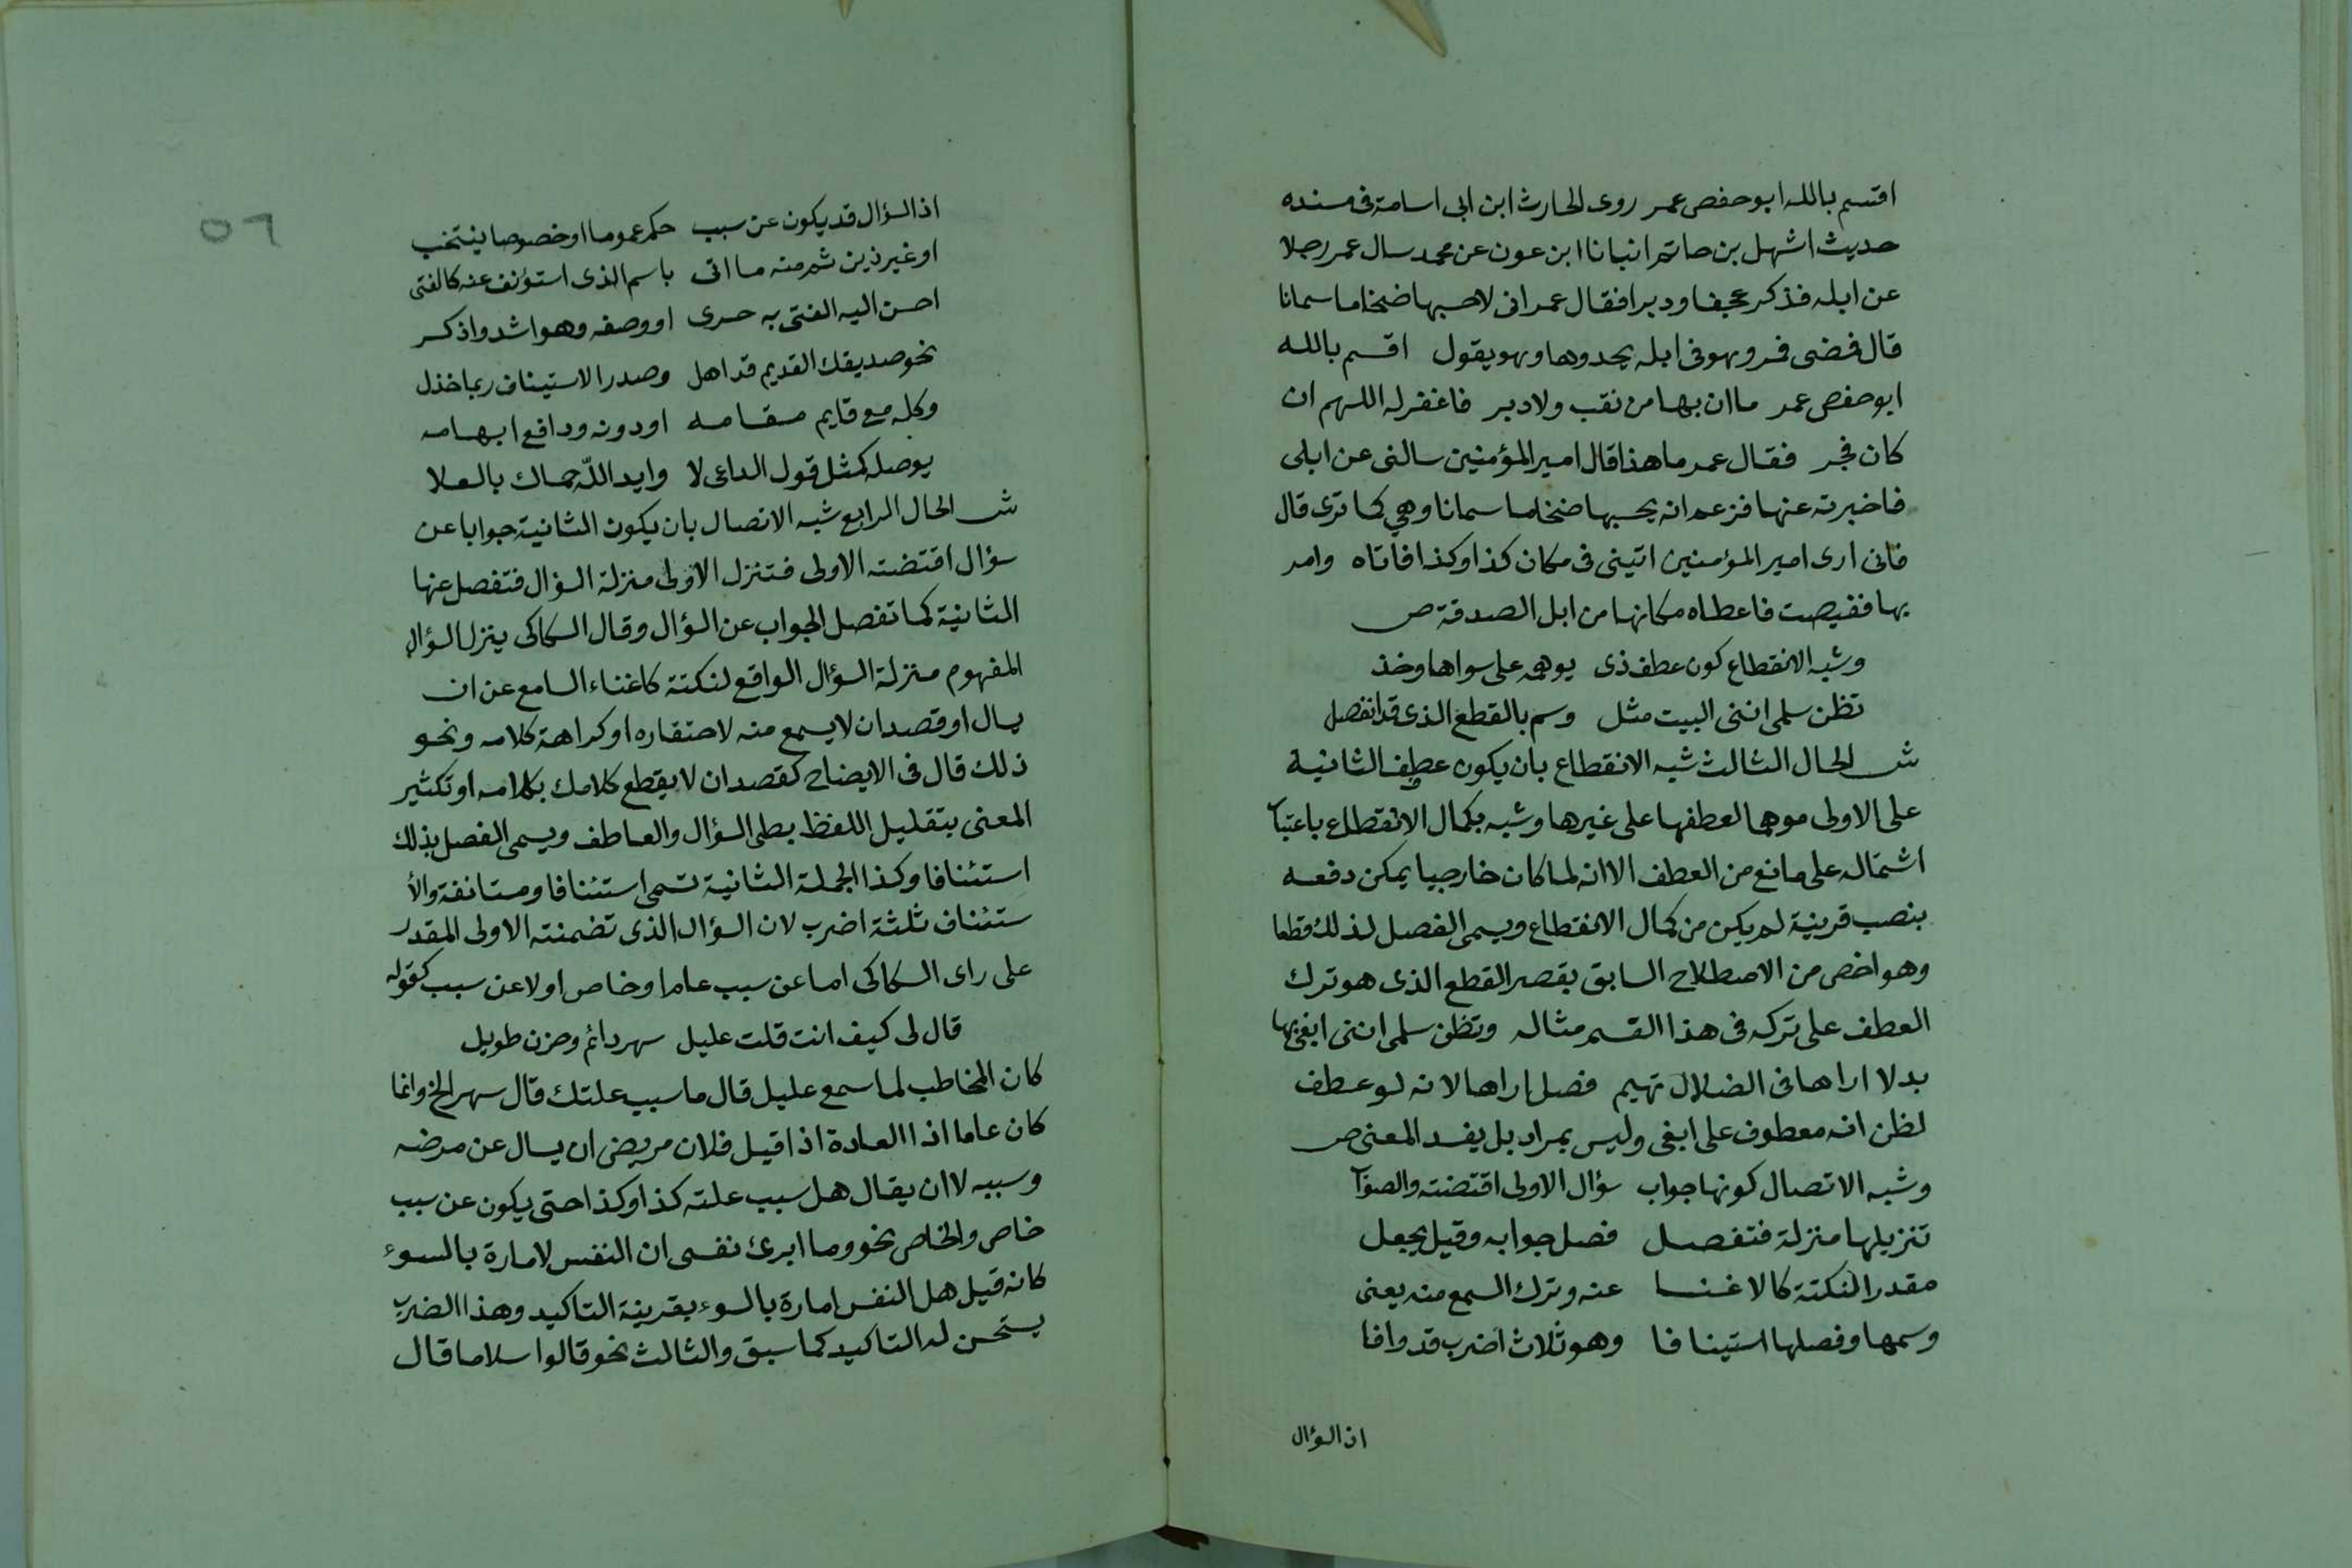 اقسم بالله ابو حفص عمر روى الحارث ابن ابى اسامة فى مسنده
حديث اشهل بن حاتم انبانا ابن عون عن محمد سال عمر رجلا
عن ابله فذكر عجفا ودبرا فقال عمر انى لاحسبها ضخاما سمانا
قال فمضى فمر وهو فى ابله يحدوها وهو يقول اقسم بالله
ابو حفص عمر ما ان بها من نقب ولا دبر فاغفر له اللهم ان
كان فجر فقال عمر ما هذا قال امير المؤمنين سالنى عن ابلى
فاخبرته عنها فزعم انه يحسبها ضخاما سمانا وهي كما ترى قال
فانى ارى امير المؤمنين اتينى فى مكان كذا وكذا فاتاه وامر
بها فقبضت فاعطاه مكانها من ابل الصدقة ص
وشبه الانقطاع كون عطف ذى يوهم على سواها وخذ
تظن سلمى اننى البيت مثل وسم بالقطع الذى قد انفصل
ش الحال الثالث شبه الانقطاع بان يكون عطف الثانية
على الاولى موهما لعطفها على غيرها وشبه بكمال الانقطاع باعتبا
اشتماله على مانع من العطف الا انه لما كان خارجيا يمكن دفعه
بنصب قرينة لم يكن من كمال الانقطاع ويسمى الفصل لذلك قطعا
وهو اخص من الاصطلاح السابق بقصر القطع الذى هو ترك
العطف على تركه فى هذا القسم مثاله وتظن سلمى اننى ابغى بها
بدلا اراها فى الضلال تهيم فصل اراها لانه لو عطف
لظن انه معطوف على ابغى وليس بمراد بل يفسد المعنى ص
وشبه الاتصال كونها جواب سؤال الاولى اقتضته والصوا
تنزيلها منزلة فتفصل فصل جوابه وقيل يجعل
مقدرا لنكتة كالاغنا عنه وترك السمع منه يعنى
وسمها وفصلها استينافا وهو ثلاث اضرب قد وافا
اذ السؤال
٥٦
اذ السؤال قد يكون عن سبب حكم عموما او خصوصا ينتخب
او غير ذين ثم منه ما اتى باسم الذى استؤنف عنه كالفتى
احسن اليه الفتى به حرى او وصفه وهو اشد واذكر
نحو صديقك القديم قد اهل وصدر الاستيناف ربما خذل
وكله مع قايم مقامه او دونه ودافع ابهامه
يوصله كمثل قول الداعى لا وايد الله حماك بالعلا
ش الحال الرابع شبه الاتصال بان يكون الثانية جوابا عن
سؤال اقتضته الاولى فتنزل الاولى منزلة السؤال فتفصل عنها
الثانية كما تفصل الجواب عن السؤال وقال السكاكى ينزل السؤال
المفهوم منزلة السؤال الواقع لنكتة كاغناء السامع عن ان
يسال او قصد ان لا يسمع منه لاحتقاره او كراهة كلامه ونحو
ذلك قال فى الايضاح كقصد ان لا يقطع كلامك بكلامه او تكثير
المعنى بتقليل اللفظ بطى السؤال والعاطف ويسمى الفصل بذلك
استئنافا وكذا الجملة الثانية تسمى استئنافا ومستانفة والأ
ستئناف ثلثة اضرب لان السؤال الذى تضمنته الاولى المقدر
على راى السكاكى اما عن سبب عام او خاص او لا عن سبب كقوله
قال لى كيف انت قلت عليل سهر دائم وحزن طويل
كان المخاطب لما سمع عليل قال ما سبب علتك قال سهر الخ وانما
كان عاما اذ العادة اذا قيل فلان مريض ان يسال عن مرضه
وسببه لا ان يقال هل سبب علته كذا وكذا حتى يكون عن سبب
خاص والخاص نحو وما ابرئ نفسى ان النفس لامارة بالسوء
كانه قيل هل النفس امارة بالسوء بقرينة التاكيد وهذا الضرب
يستحسن له التاكيد كما سبق والثالث نحو قالوا سلاما قال